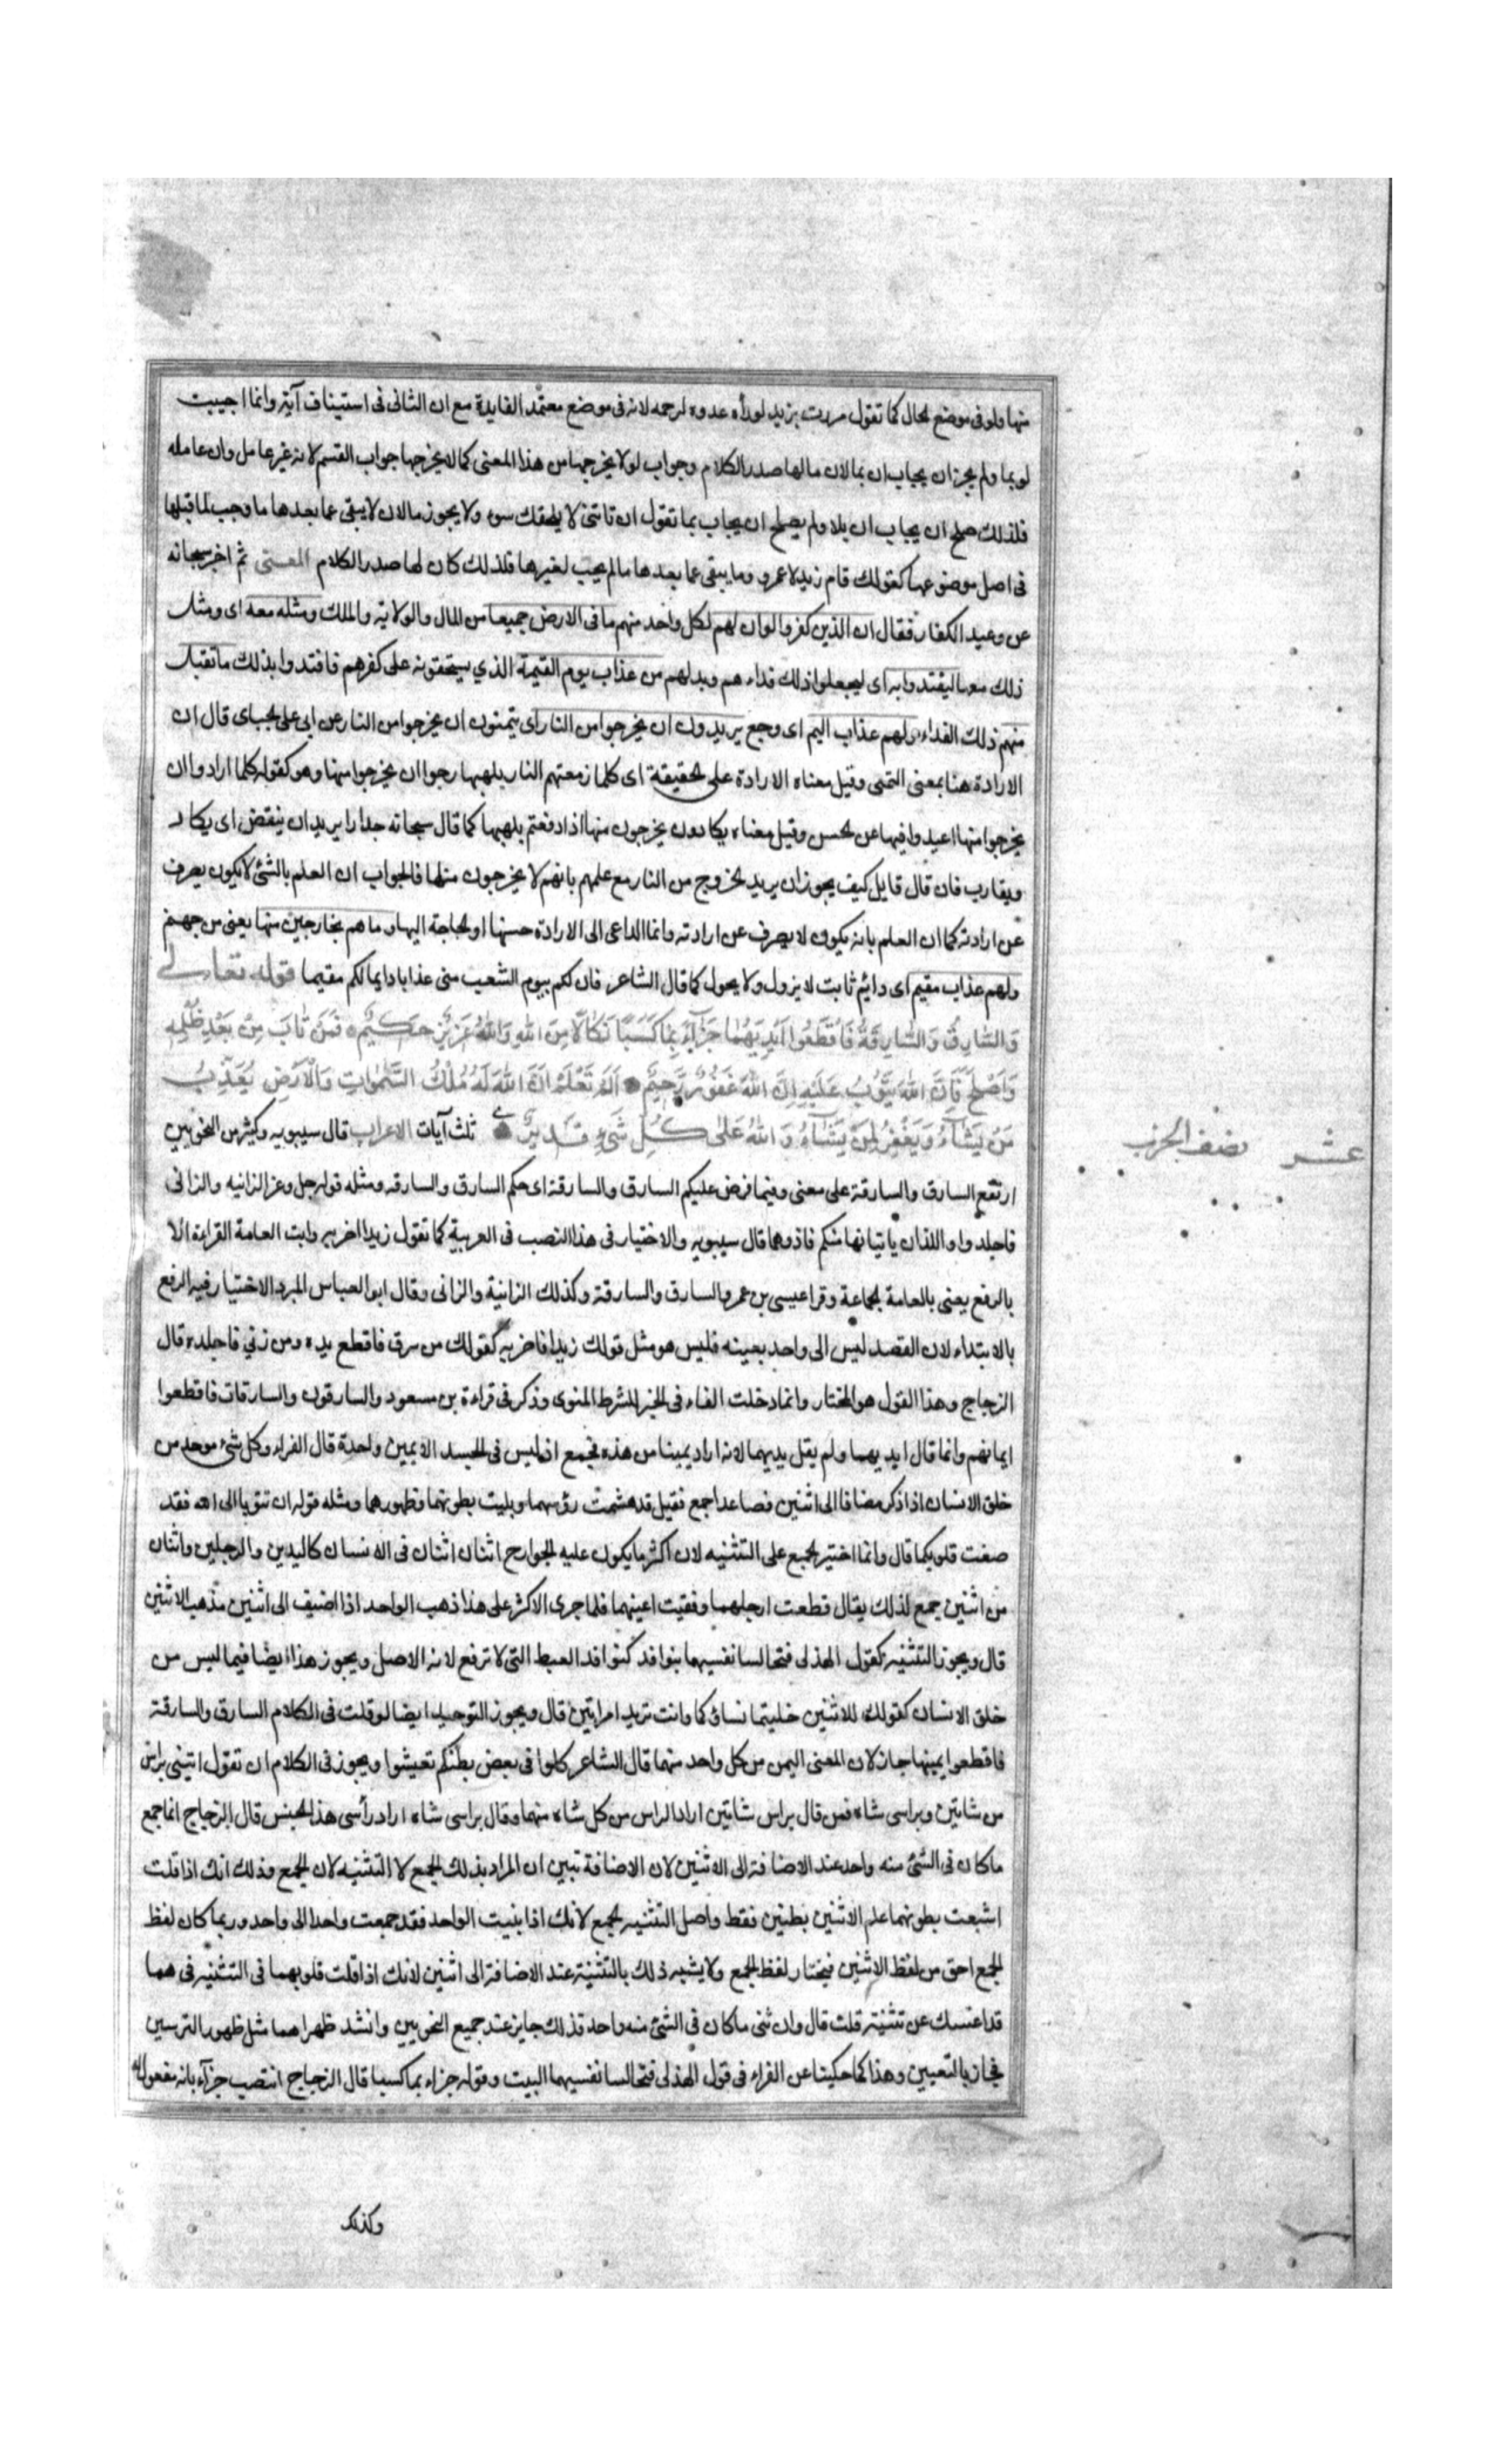 منها ولو فى موضع الحال كما تقول مررت بزيد لو رأه عدوه لرحمه لانه فى موضع معتمد الفايدة مع ان الثانى فى استيناف آية وانما اجيبت
لو بما ولم يجز ان يجاب ان بما لان ما لها صدر الكلام وجواب لو لا يخرجها من هذا المعنى كما لا يخرجها جواب القسم لانه غير عامل وان عامله
فلذلك صلح ان يجاب ان بلا ولم يصلح ان يجاب بما تقول ان تاتنى لا يلحقك سوء ولا يجوز ما لان لا ينفى عما بعدها ما وجب لما قبلها
فى اصل موضوعها كقولك قام زيد لا عمرو وما ينفى عما بعدها ما لم يجب لغيرها فلذلك كان لها صدر الكلام المعنى ثم اخبر سبحانه
عن وعيد الكفار فقال ان الذين كفروا لو ان لهم لكل واحد منهم ما فى الارض جميعا من المال والولاية والملك ومثله معه اى ومثل
ذلك معه ليفتدوا به اى ليجعلوا ذلك فداءهم وبدلهم من عذاب يوم القيمة الذي يستحقونه على كفرهم فافتدوا بذلك ما تقبل
منهم ذلك الفداء ولهم عذاب اليم اى وجع يريدون ان يخرجوا من النار اى يتمنون ان يخرجوا من النار عن ابى على الجباى قال ان
الارادة هنا بمعنى التمنى وقيل معناه الارادة على الحقيقة اى كلما رفعتهم النار بلهبها رجوا ان يخرجوا منها وهو كقوله كلما ارادوا ان
يخرجوا منها اعيدوا فيها عن الحسن وقيل معناه يكادون يخرجون منها اذا دفعتم بلهبها كما قال سبحانه جدارا يريد ان ينقض اى يكاد
ويقارب فان قال قايل كيف يجوز ان يريد الخروج من النار مع علمهم بانهم لا يخرجون منها فالجواب ان العلم بالشئ لا يكون يصرف
عن ارادته كما ان العلم بانه يكون لا يصرف عن ارادته وانما الداعى الى الارادة حسنها او الحاجة اليها وما هم بخارجين منها يعنى من جهنم
ولهم عذاب مقيم اى دايم ثابت لا يزول ولا يحول كما قال الشاعر فان لكم بيوم الشعب منى عذابا دايما لكم مقيما قوله تعالى
وَالسَّارِقُ وَالسَّارِقَةُ فَاقْطَعُوا اَيْدِيَهُمَا جَزَآءً بِمَا كَسَبَا نَكَالًا مِنَ اللهِ وَاللهُ عَزِيزٌ حَكِيمٌ فَمَنْ تَابَ مِنْ بَعْدِ ظُلْمِهِ
وَاَصْلَحَ فَاِنَّ اللهَ يَتُوبُ عَلَيْهِ اِنَّ اللهَ غَفُورٌ رَحِيمٌ اَلَمْ تَعْلَمْ اَنَّ اللهَ لَهُ مُلْكُ السَّمٰوَاتِ وَالْاَرْضِ يُعَذِّبُ
مَنْ يَشَآءُ وَيَغْفِرُ لِمَنْ يَشَآءُ وَاللهُ عَلٰى كُلِّ شَىْءٍ قَدِيرٌ ثلث آيات الاعراب قال سيبويه وكثير من النحويين
عشر نصف الحزب
ارتفع السارق والسارقة على معنى وفيما فرض عليكم السارق والسارقة اى حكم السارق والسارقه ومثله قوله جل وعز الزانيه والزانى
فاجلدوا واللذان ياتيانها منكم فاذوهما قال سيبويه والاختيار فى هذا النصب فى العربية كما تقول زيدا اضربه وابت العامة القراءة الا
بالرفع يعنى بالعامة الجماعة وقرا عيسى بن عمر والسارق والسارقة وكذلك الزانية والزانى وقال ابو العباس المبرد الاختيار فيه الرفع
بالابتداء لان القصد ليس الى واحد بعينه فليس هو مثل قولك زيدا فاضربه كقولك من سرق فاقطع يده ومن زنى فاجلده قال
الزجاج وهذا القول هو المختار وانما دخلت الفاء فى الخبر للشرط المنوى وذكر فى قراءة بن مسعود والسارقون والسارقات فاقطعوا
ايمانهم وانما قال ايديهما ولم يقل يديهما لانه اراد يمينا من هذه فجمع اذ ليس فى الجسد الا يمين واحدة قال الفراء وكل شئ موحد من
خلق الانسان اذا ذكر مضافا الى اثنين فصاعدا جمع فقيل قد هشمت رؤسهما وبليت بطونهما وظهورهما ومثله قوله ان تتوبا الى الله فقد
صغت قلوبكما قال وانما اختير الجمع على التثنيه لان اكثر ما يكون عليه الجوارح اثنان اثنان فى الانسان كاليدين والرجلين واثنان
من اثنين جمع لذلك يقال قطعت ارجلهما وفقيت اعينهما فلما جرى الاكثر على هذا ذهب الواحد اذا اضيف الى اثنين مذهب الاثنين
قال ويجوز التثنيه كقول الهذلى فتخالسا نفسيهما بنوافذ كنوافذ العبط التى لا ترفع لانه الاصل ويجوز هذا ايضا فيما ليس من
خلق الانسان كقولك للاثنين خليتما نساؤكما وانت تريد امراتين قال ويجوز التوحيد ايضا لو قلت فى الكلام السارق والسارقة
فاقطعوا يمينها جاز لان المعنى اليمن من كل واحد منهما قال الشاعر كلوا فى بعض بطنكم تعيشوا ويجوز فى الكلام ان تقول ائتينى براس
من شاتين وبراسى شاة فمن قال براس شاتين اراد الراس من كل شاة منهما وقال براسى شاه اراد رأسى هذا الجنس قال الزجاج انما جمع
ما كان فى الشئ منه واحد عند الاضافة الى الاثنين لان الاضافة تبين ان المراد بذلك الجمع لا التثنيه لان الجمع وذلك انك اذا قلت
اشبعت بطونهما علم الاثنين بطنين فقط واصل التثنيه الجمع لانك اذا بنيت الواحد فقد جمعت واحدا الى واحد وربما كان لفظ
الجمع احق من لفظ الاثنين فيختار لفظ الجمع ولا يشبه ذلك بالتثنية عند الاضافة الى اثنين لانك اذا قلت قلوبهما فى التثنيه فى هما
قد اغنتك عن تثنية قلت قال وان ثنى ما كان فى الشئ منه واحد فذلك جايز عند جميع النحويين وانشد ظهراهما مثل ظهور الترسين
فجاز بالتعيين وهذا كما حكينا عن الفراء فى قول الهذلى فتخالسا نفسيهما البيت وقوله جزاء بما كسبا قال الزجاج انتصب جزآء بانه مفعول له
وكذلك